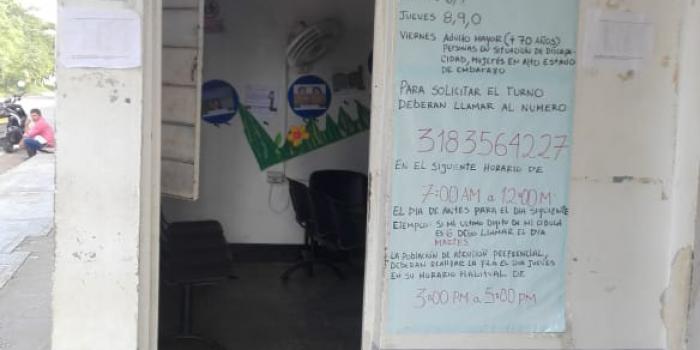 JUEVES 8,9,0
VIERNES ADULTO MAYOR (+ 70 AÑOS)
PERSONAS EN SITUACIÓN DE DISCAPA-
CIDAD, MUJERES EN ALTO ESTADO
DE EMBARAZO
PARA SOLICITAR EL TURNO
DEBERAN LLAMAR AL NUMERO
3183564227
EN EL SIGUIENTE HORARIO DE
7:00 AM a 12:00 M
EL DIA DE ANTES PARA EL DIA SIGUIENTE
EJEMPLO: SI MI ULTIMO DIGITO DE MI CEDULA
ES 6 DEBO LLAMAR EL DIA
MARTES
LA POBLACION DE ATENCION PREFERENCIAL,
DEBERAN REALIZAR LA FILA EL DIA JUEVES
EN SU HORARIO HABITUAL DE
3:00 PM a 5:00 PM